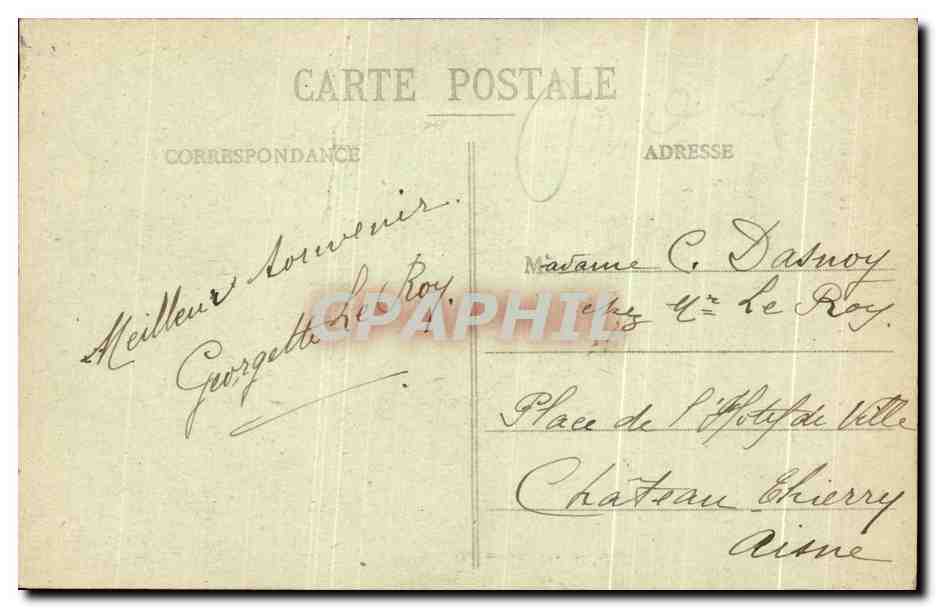 CARTE POSTALE
CORRESPONDANCE
ADRESSE
Meilleur souvenir.
Georgette Le Roy.
Madame C. Dasnoy
chez Mr Le Roy.
Place de l'Hotel de Ville
Château Thierry
Aisne
CPAPHIL